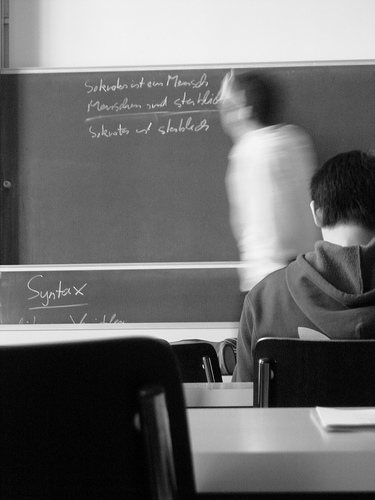 Sokrates ist ein Mensch
Menschen sind sterblich
Sokrates ist sterblich
Syntax
Variablen